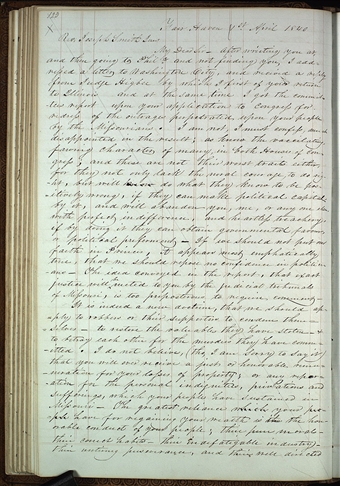 122
Fair Haven 1st April 1840
Rev. Joseph Smith Jun.
My Dear Sir — After writing you at
and then going to Phila & not finding you, I add-
ressed a letter to Washington City, and received a reply
from Judge Higbee by which I first of your return
to Illinois and at the same time I got the commit-
tees report upon your application to Congress for
redress of the outrages perpetrated upon your people
by the Missourians. I am not, I must confess, much
disappointed in the result; as I know the vacillating,
fawning character of many in both Houses of Con-
gress; and these are not their worst traits either,
for they not only lack the moral courage to do ri-
ght, but will do what they know to be pos-
itively wrong, if they can make political capital
by it, and will abandon you, me, or any one else
with perfect indifference, and heartless treachery;
if by doing it they can obtain governmental favour
or political preferment. If we should not put our
trust in Princes, it appears most emphatically
true, that we should repose no confidence in politici-
ans — The idea conveyed in the report, that exact
justice will be meted to you by the judicial tribunals
of Missouri, is too preposterous to require comment.
It is indeed a new doctrine, that we should ap-
ply to robbers or their supporters to condemn them-
selves — to restore the valuables they have stolen &
to betray each other for the murders they have comm-
itted. I do not believe, (tho, I am sorry to say it)
that you will ever receive a just & honorable remu-
neration for your losses of property; or any repar-
ation for the personal indignities, privations and
sufferings, which your people have sustained in
Missouri — The greatest reliance which your peo-
ple have for regaining your wealth is in the hon-
orable conduct of your people; their pure morals —
their correct habits — their indefatigable industry —
their untiring perseverance, and their well directed